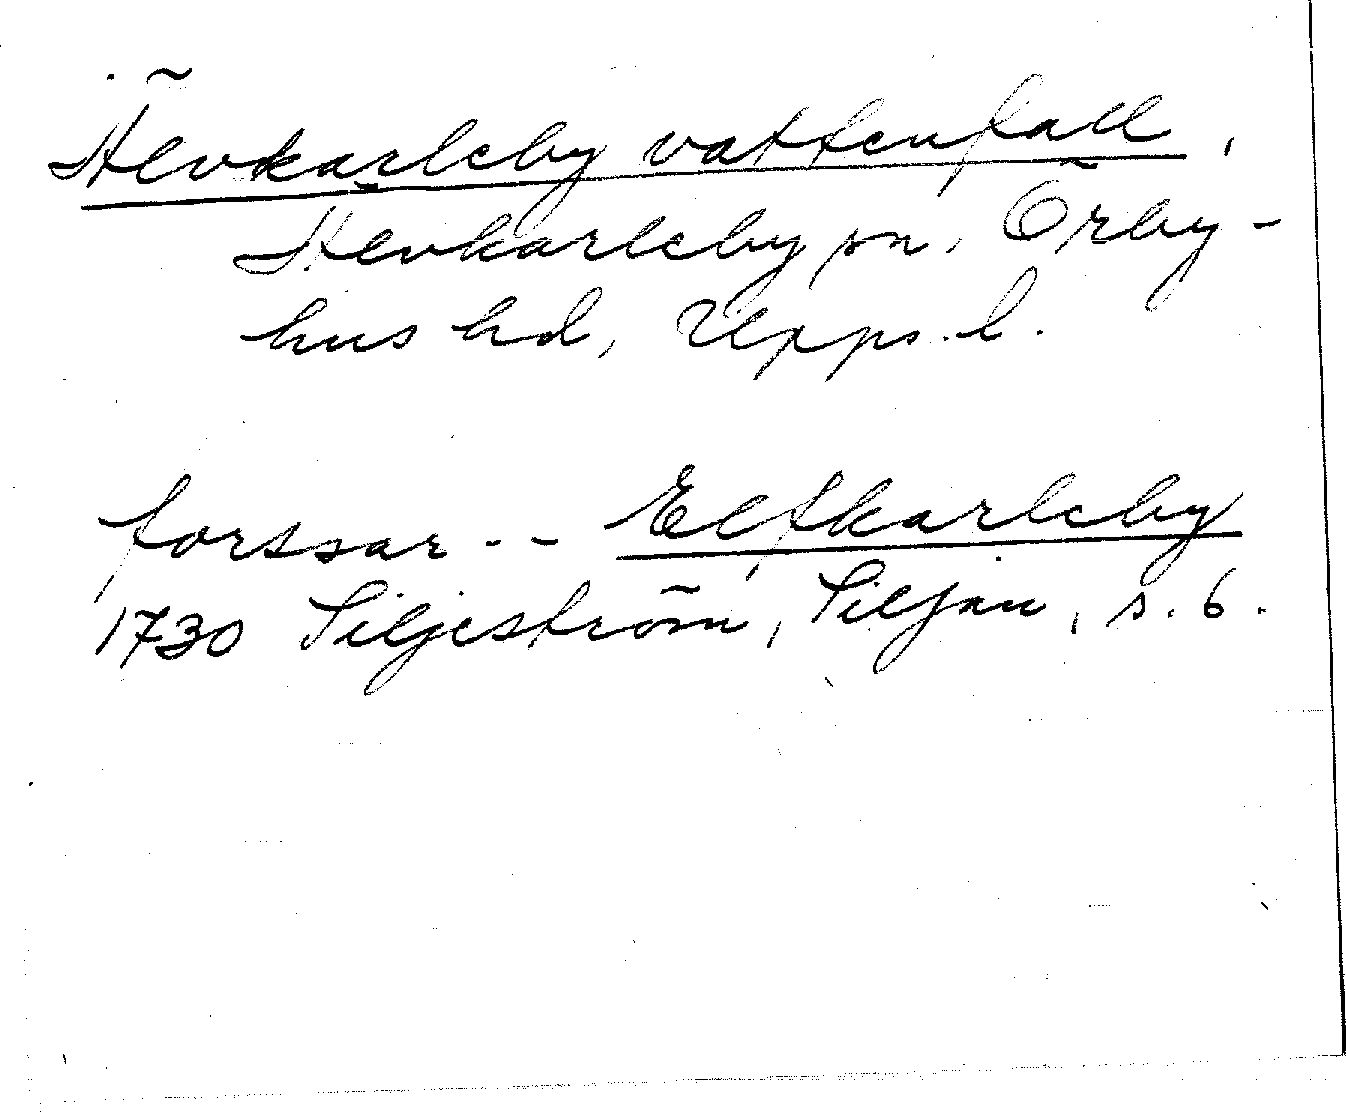 Älvkarleby vattenfall,
Älvkarleby sn, Örby-
hus hd, Upps. l.
forssar -- Elfkarleby
1730 Siljeström, Siljan, s. 6.